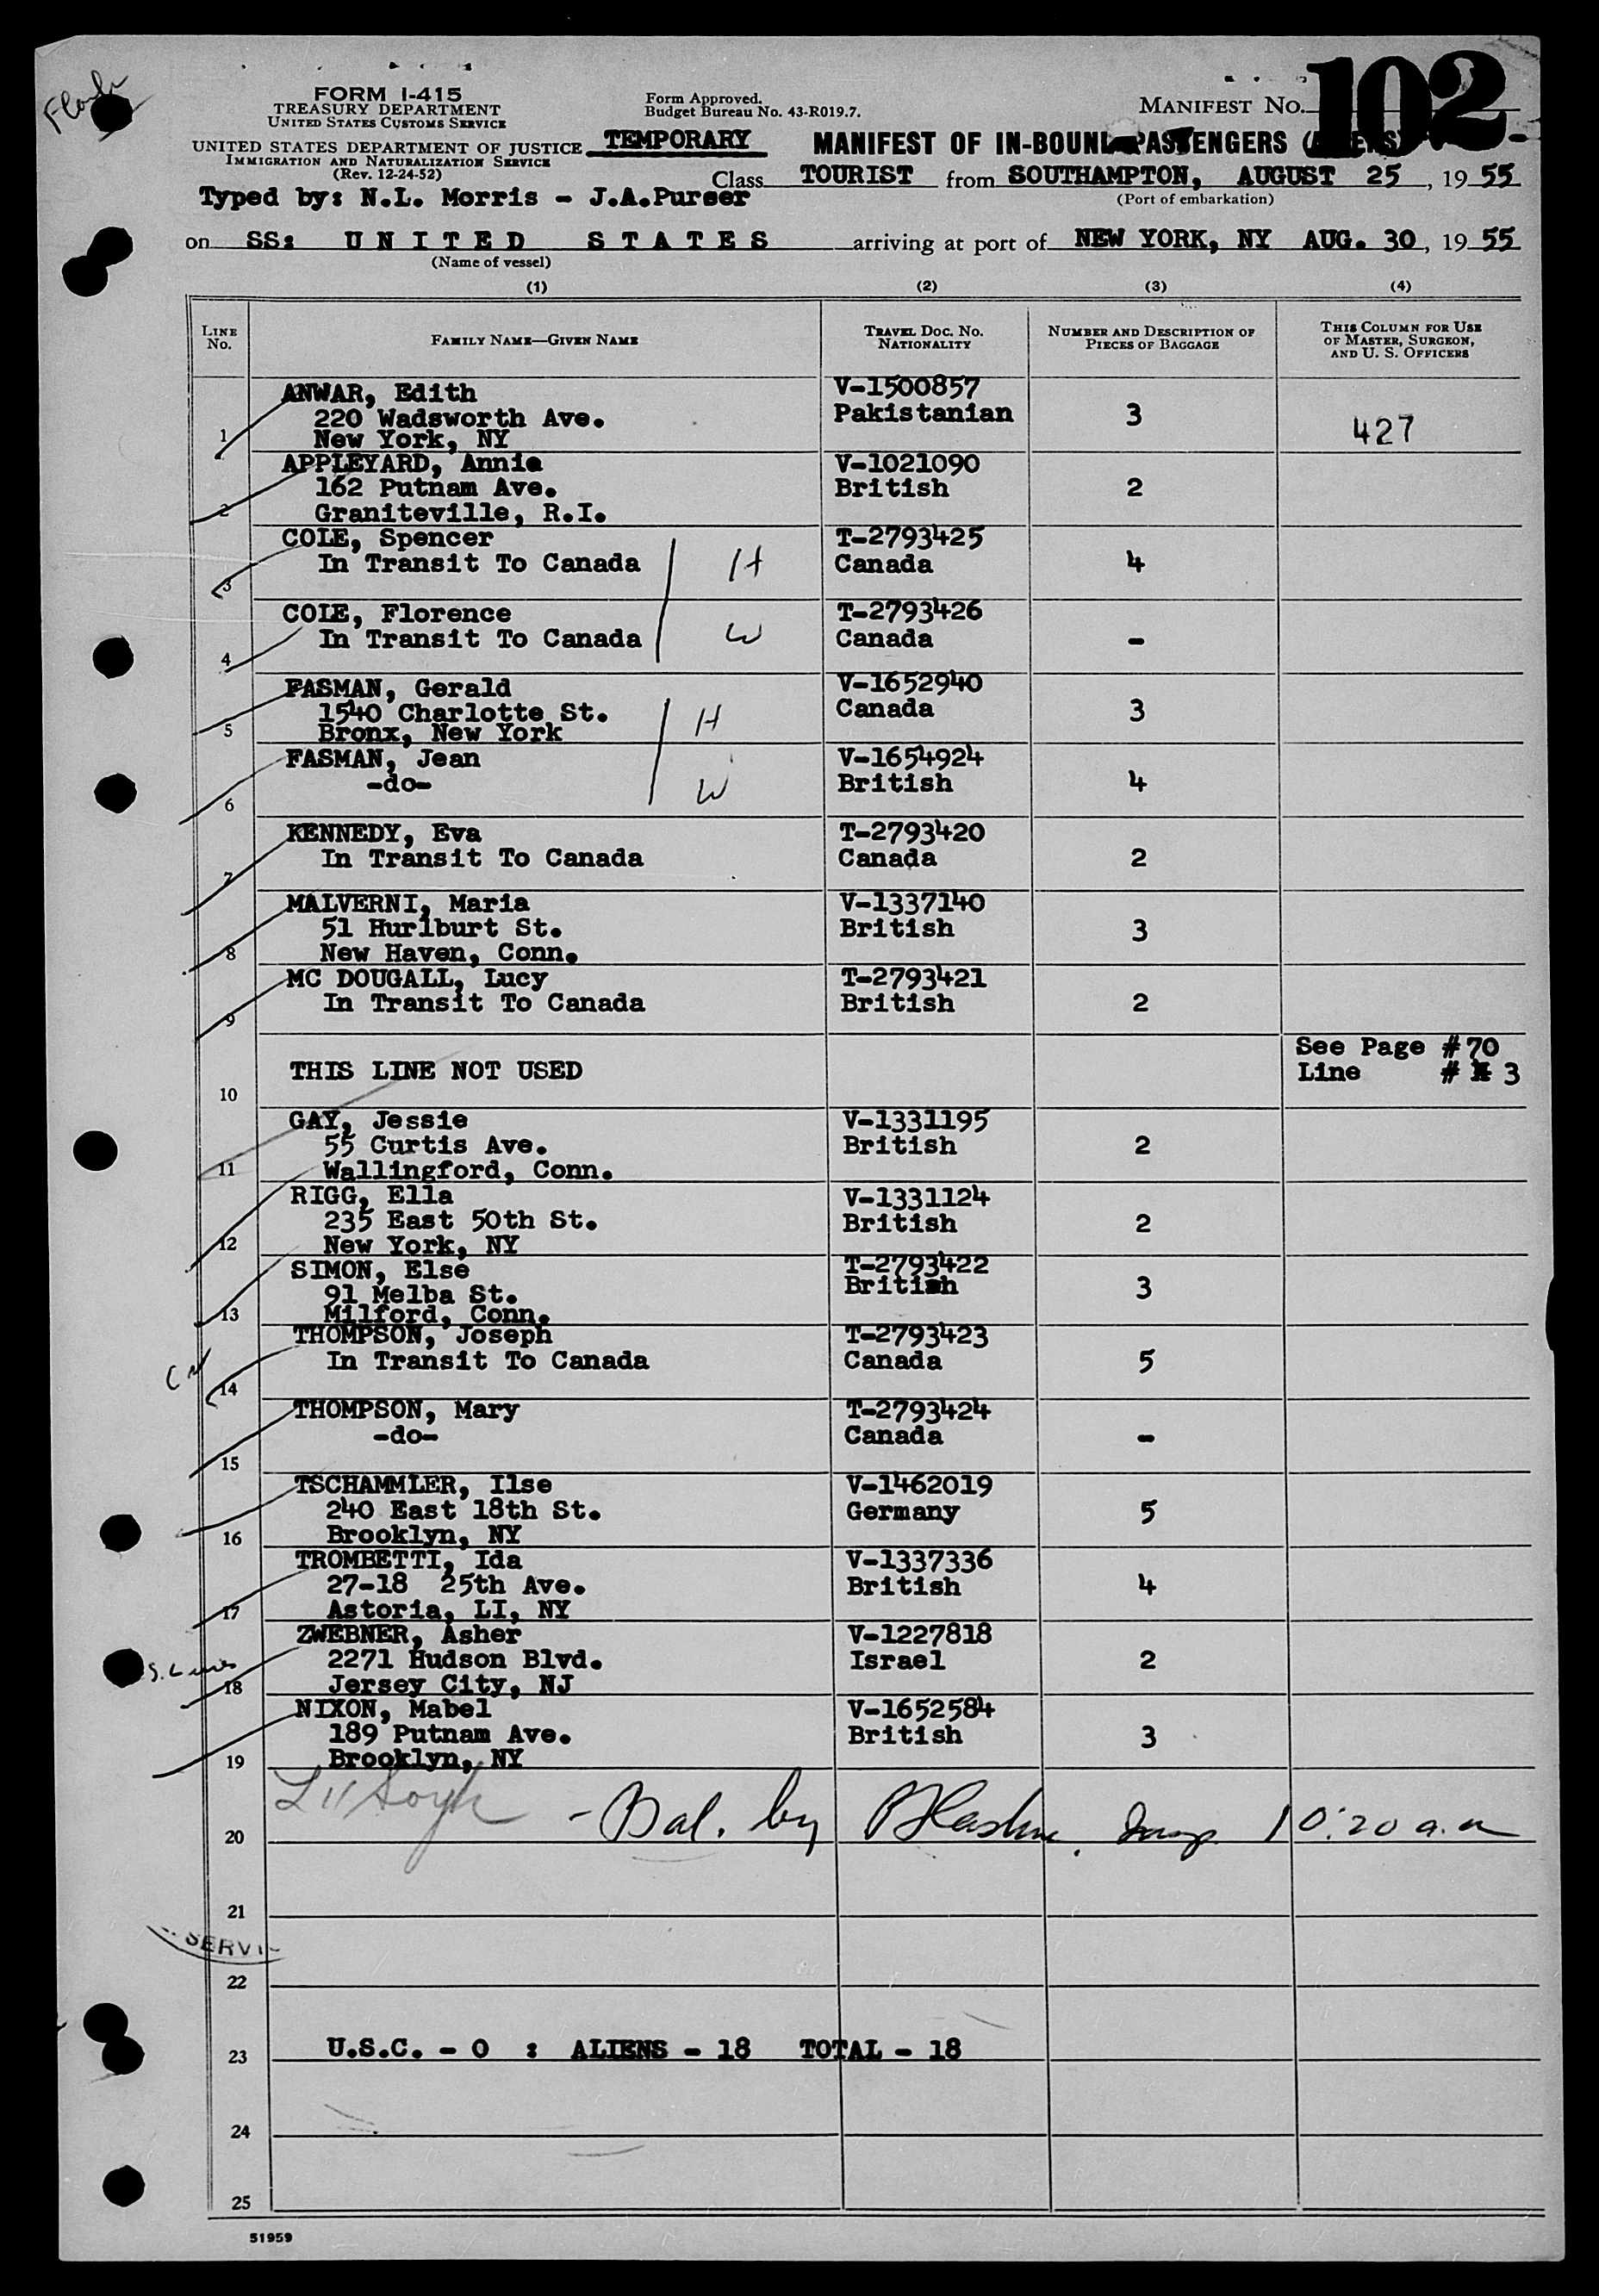 FORM I-415
TREASURY DEPARTMENT
UNITED STATES CUSTOMS SERVICE
UNITED STATES DEPARTMENT OF JUSTICE
IMMIGRATION AND NATURALIZATION SERVICE
(Rev. 12-24-52)
Form Approved.
Budget Bureau No. 43-R019.7.
TEMPORARY
MANIFEST NO. 102
MANIFEST OF IN-BOUND PASSENGERS (ALIENS)
Class TOURIST from SOUTHAMPTON, AUGUST 25, 1955
(Port of embarkation)
Typed by: N.L. Morris - J.A.Purser
on SS: UNITED STATES arriving at port of NEW YORK, NY AUG. 30, 1955
(Name of vessel)
(1) (2) (3) (4)
LINE NO. FAMILY NAME—GIVEN NAME TRAVEL DOC. NO. NATIONALITY NUMBER AND DESCRIPTION OF PIECES OF BAGGAGE THIS COLUMN FOR USE OF MASTER, SURGEON, AND U. S. OFFICERS
ANWAR, Edith V-1500857
220 Wadsworth Ave. Pakistanian 3 427
1 New York, NY
APPLEYARD, Annie V-1021090
162 Putnam Ave. British 2
2 Graniteville, R.I.
COLE, Spencer T-2793425
In Transit To Canada H Canada 4
3
COLE, Florence T-2793426
In Transit To Canada W Canada -
4
FASMAN, Gerald V-1652940
1540 Charlotte St. H Canada 3
5 Bronx, New York
FASMAN, Jean V-1654924
-do- W British 4
6
KENNEDY, Eva T-2793420
In Transit To Canada Canada 2
7
MALVERNI, Maria V-1337140
51 Hurlburt St. British 3
8 New Haven, Conn.
MC DOUGALL, Lucy T-2793421
In Transit To Canada British 2
9
See Page #70
THIS LINE NOT USED Line # 3
10
GAY, Jessie V-1331195
55 Curtis Ave. British 2
11 Wallingford, Conn.
RIGG, Ella V-1331124
235 East 50th St. British 2
12 New York, NY
SIMON, Else T-2793422
91 Melba St. British 3
13 Milford, Conn.
THOMPSON, Joseph T-2793423
In Transit To Canada Canada 5
14
THOMPSON, Mary T-2793424
-do- Canada -
15
TSCHAMMLER, Ilse V-1462019
240 East 18th St. Germany 5
16 Brooklyn, NY
TROMBETTI, Ida V-1337336
27-18 25th Ave. British 4
17 Astoria, LI, NY
ZWEBNER, Asher V-1227818
2271 Hudson Blvd. Israel 2
18 Jersey City, NJ
NIXON, Mabel V-1652584
189 Putnam Ave. British 3
19 Brooklyn, NY
20 - Bal. by 10:20 a.m
21
SERVI
22
23 U.S.C. - 0 : ALIENS - 18 TOTAL - 18
24
25
51959